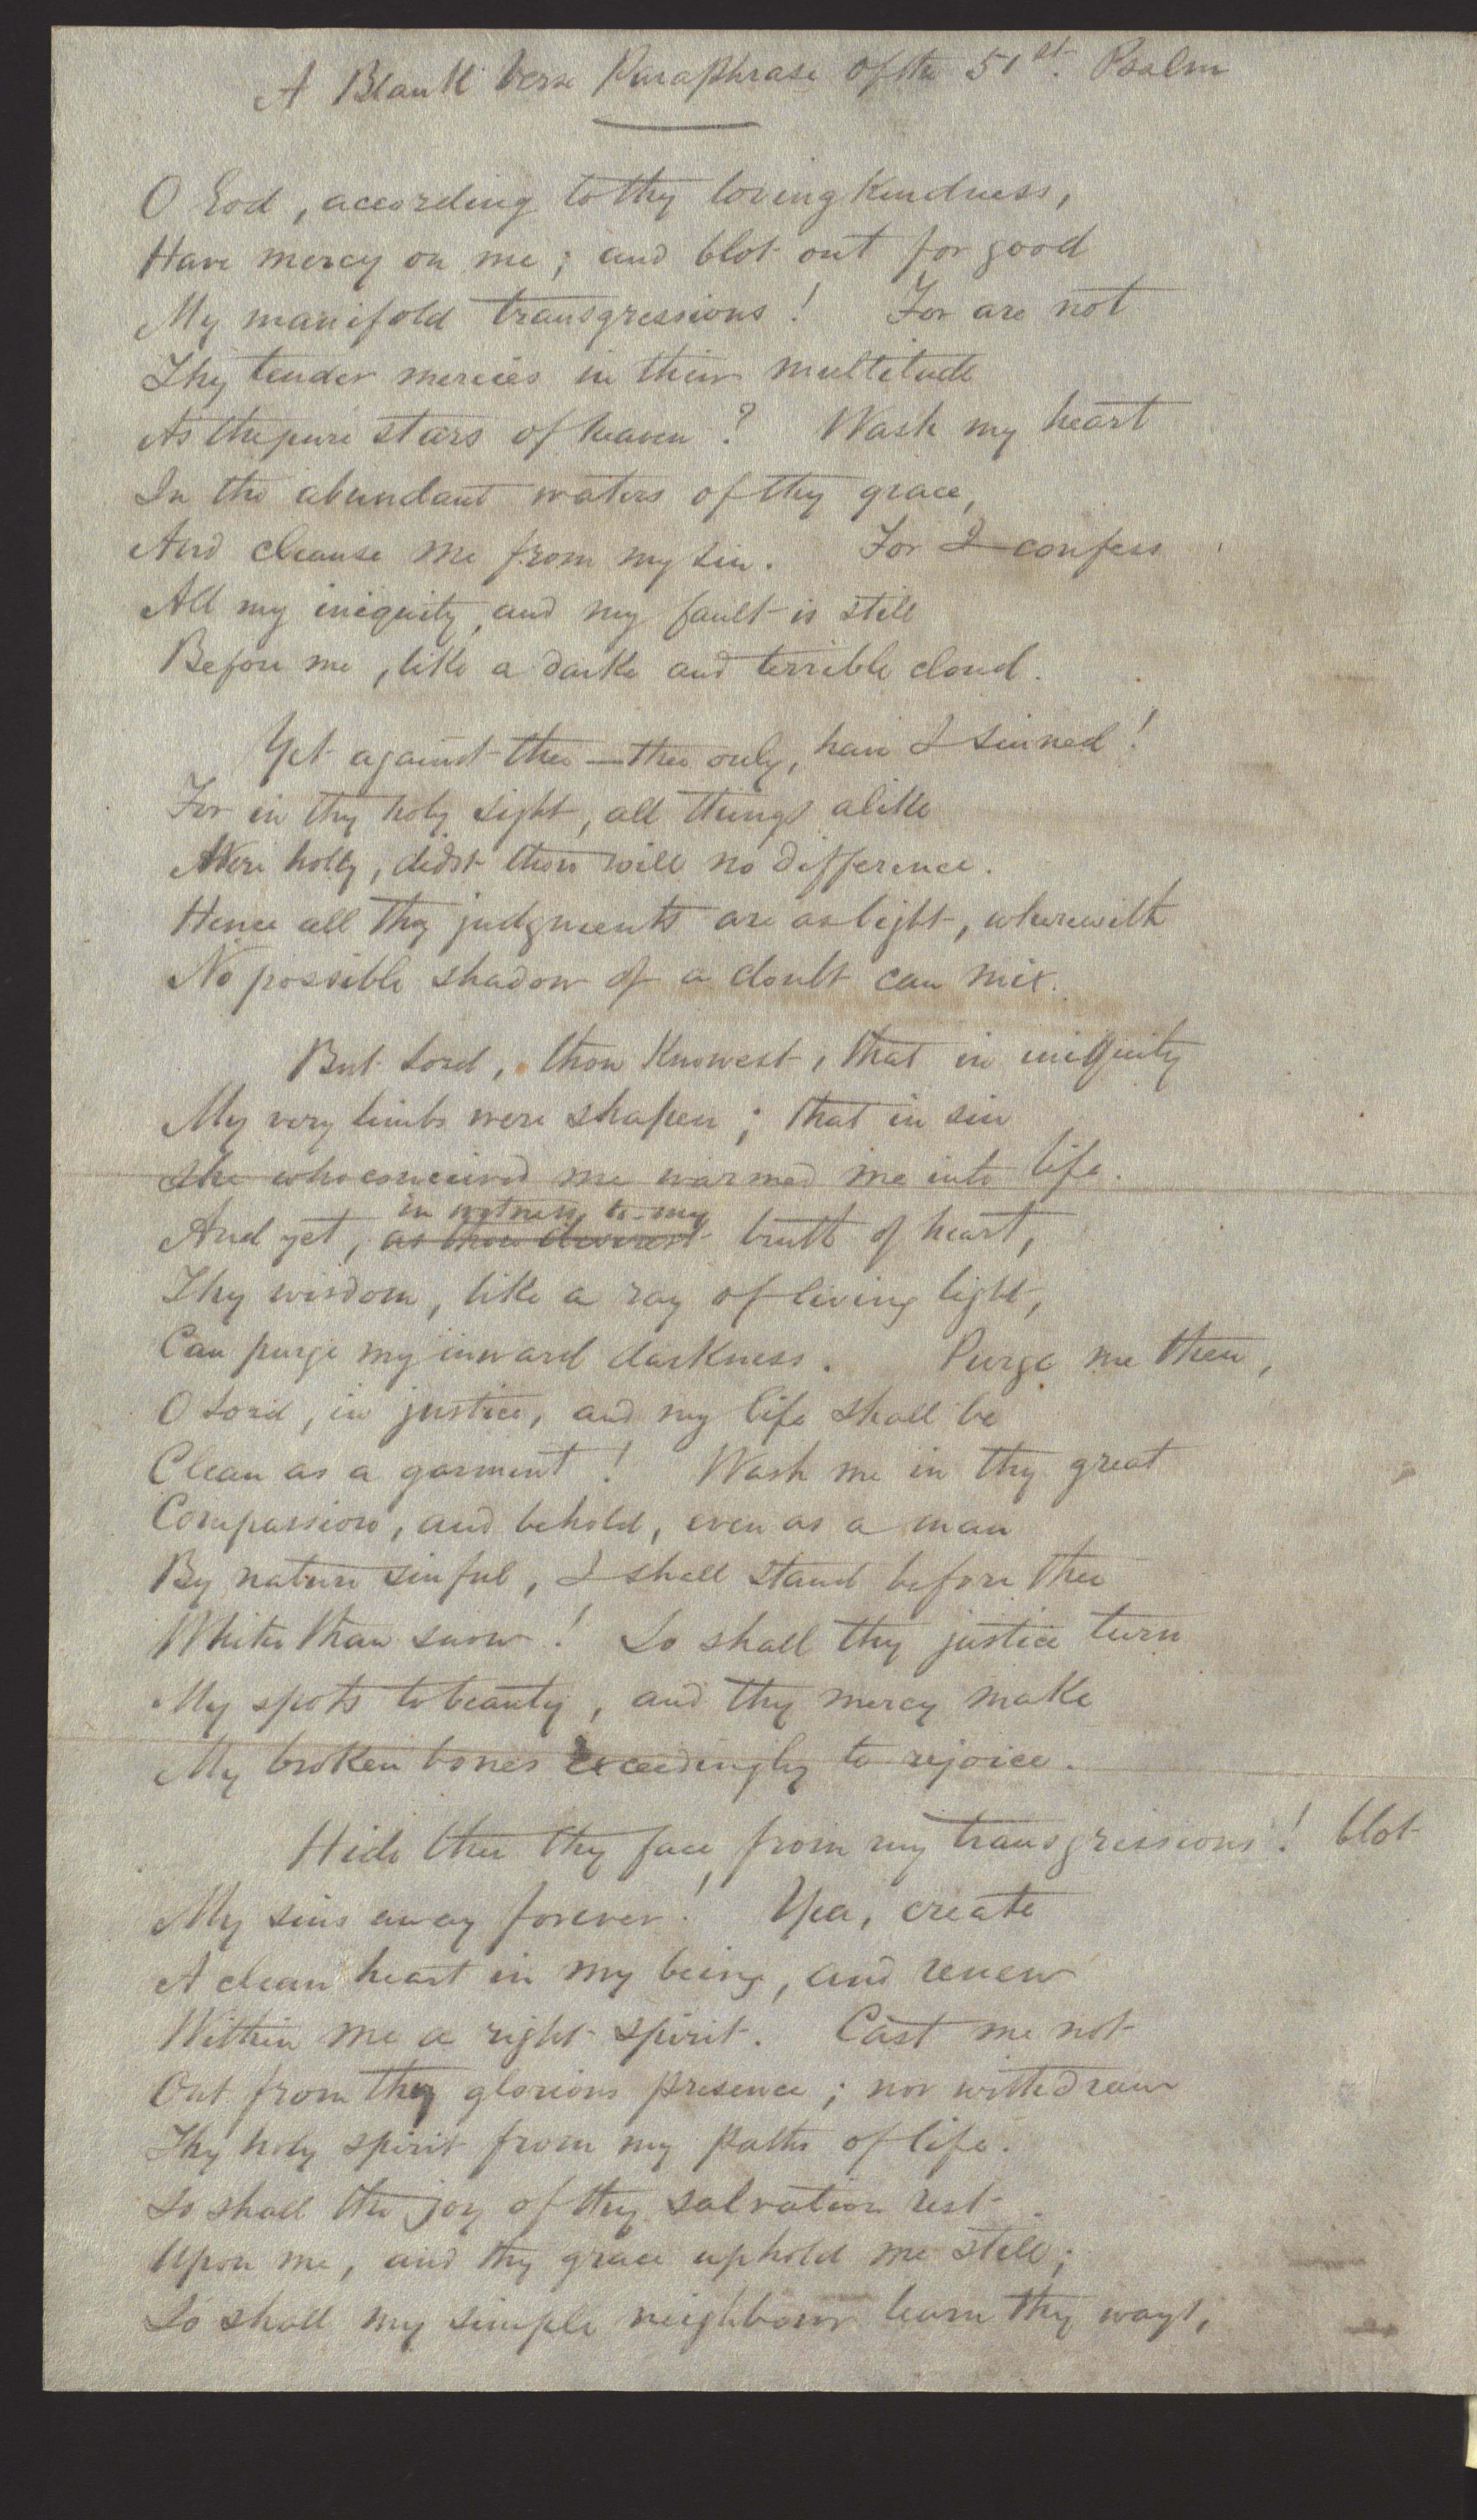 A Blank Verse Paraphrase of the 51st. Psalm
O God, according to thy lovingkindness,
Have mercy on me; and blot out for good
My manifold transgressions! For are not
Thy tender mercies in their multitude
As the pure stars of heaven? Wash my heart
In the abundant waters of thy grace,
And cleanse me from my sin. For I confess
All my iniquity, and my fault is still
Before me, like a dark and terrible cloud.
Yet against thee—thee only, have I sinned!
For in thy holy sight, all things alike
Were holy, didst thou will no difference.
Hence all thy judgments are as light, wherewith
No possible shadow of a doubt can mix.
But Lord, thou knowest, that in iniquity
My very limbs were shapen; that in sin
She who conceived me warmed me into life.
in witness to my
And yet, as thou desirest truth of heart,
Thy wisdom, like a ray of living light,
Can purge my inward darkness. Purge me then,
O Lord, in justice, and my life shall be
Clean as a garment! Wash me in thy great
Compassion, and behold, even as a man
By nature sinful, I shall stand before thee
Whiter than snow! So shall thy justice turn
My spots to beauty, and thy mercy make
My broken bones exceedingly to rejoice.
Hide then thy face from my transgressions! blot
My sins away forever! Yea, create
A clean heart in my being, and renew
Within me a right spirit. Cast me not
Out from thy glorious presence; nor withdraw
Thy holy spirit from my paths of life.
So shall the joy of thy salvation rest
Upon me, and thy grace uphold me still;
So shall my simple neighbour learn thy ways,